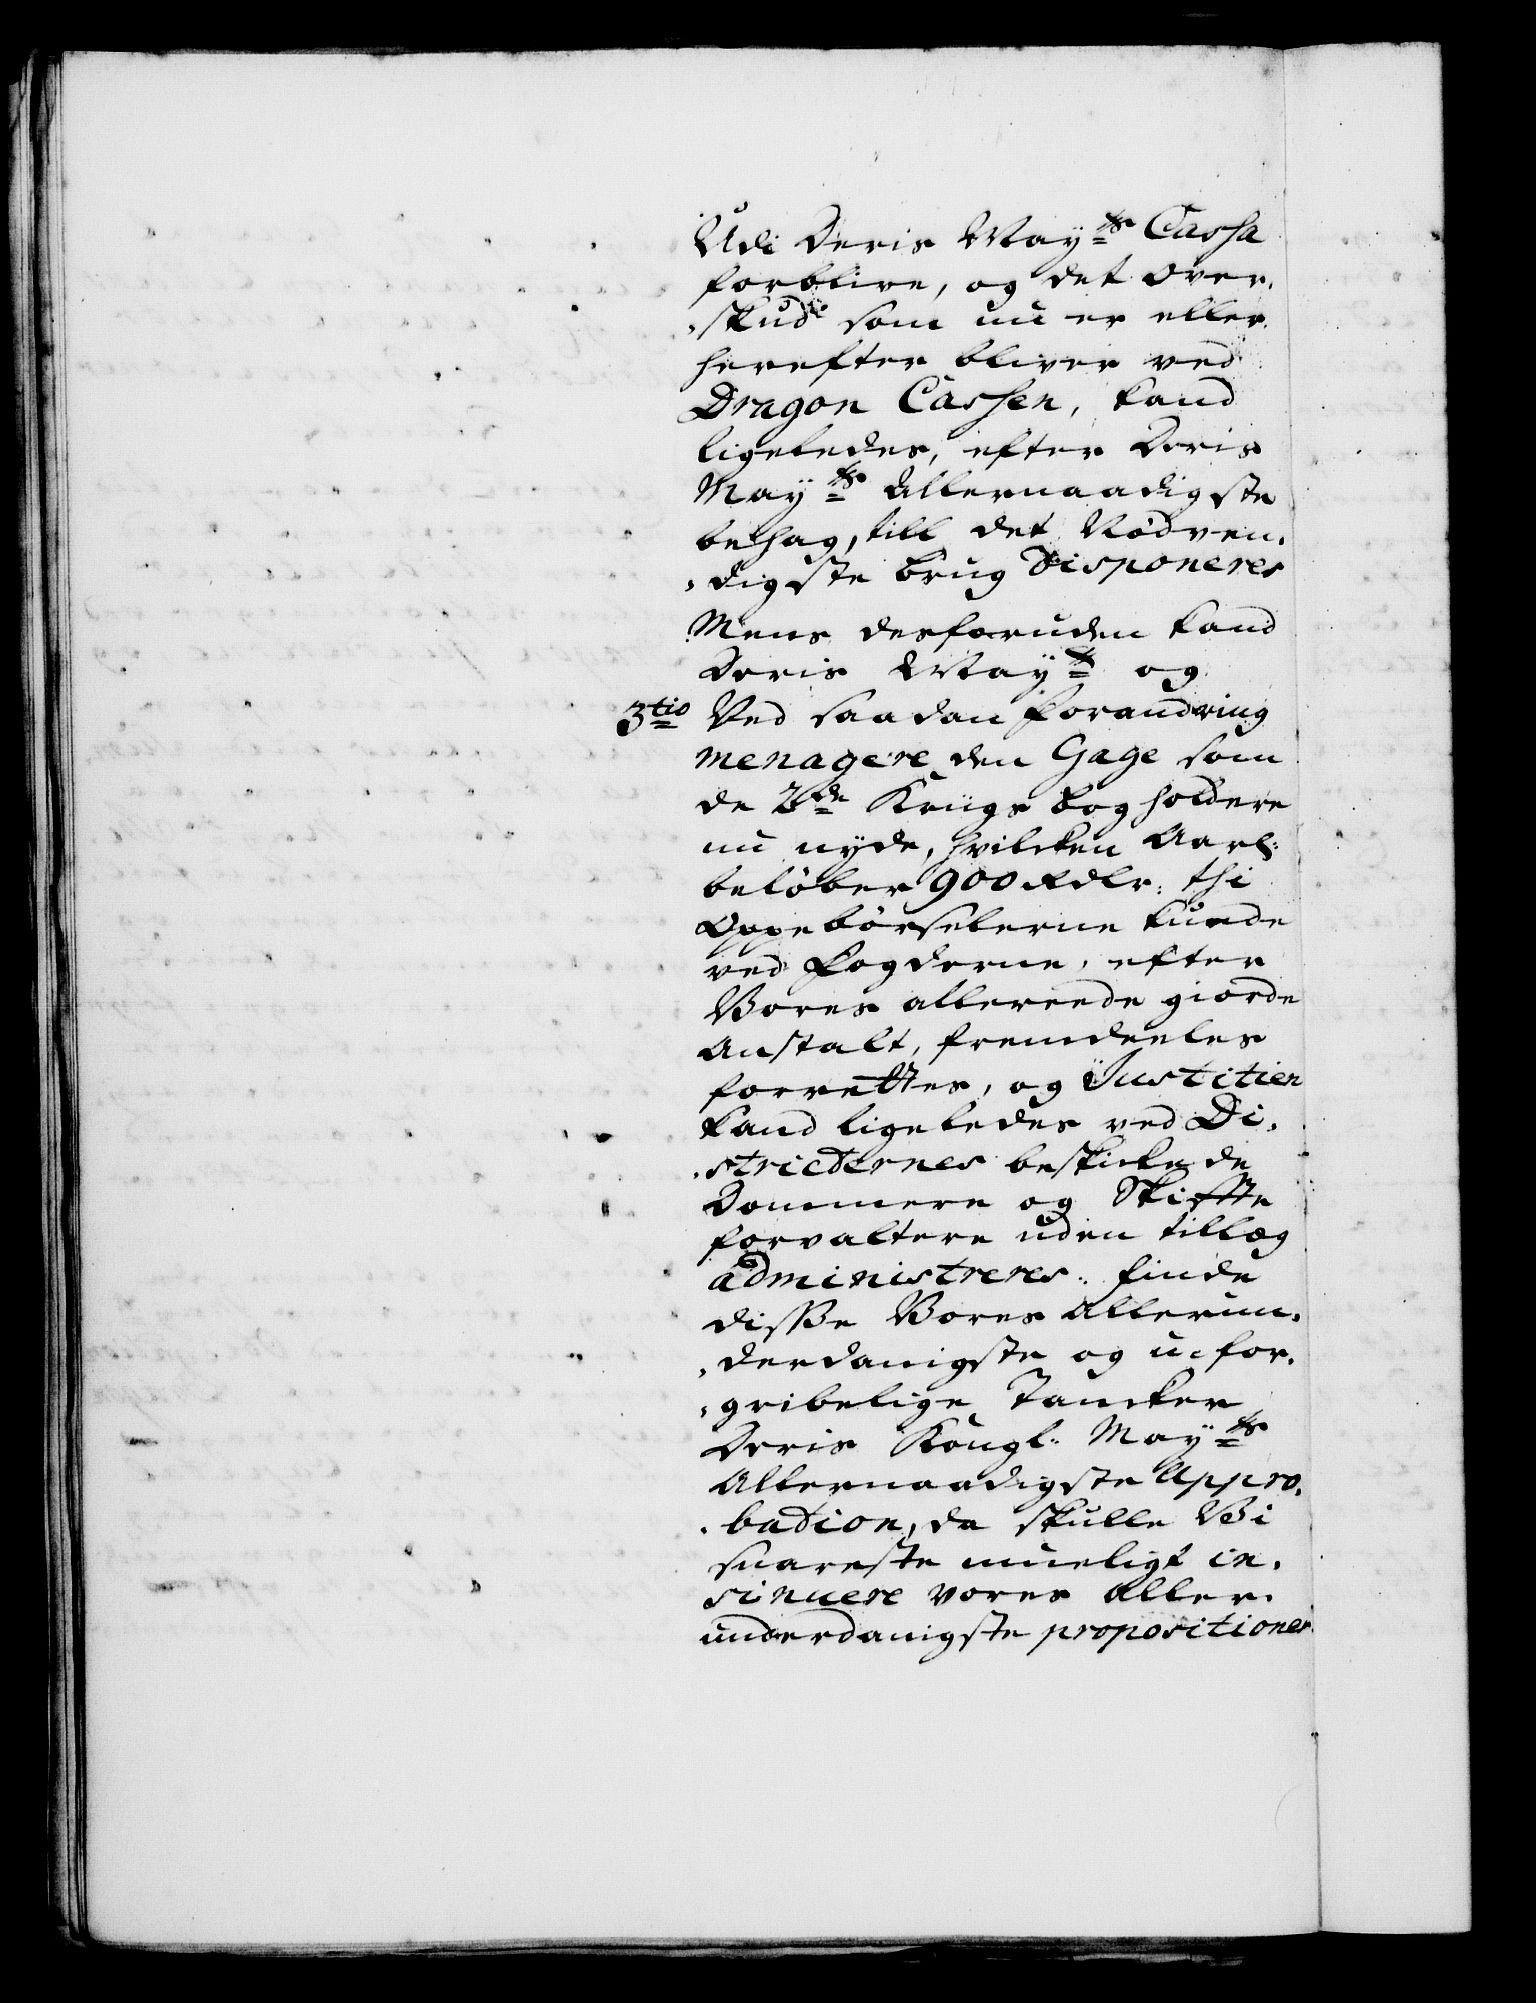 Udi Deris May:ts Cassa
forblive, og det Over„
„skud som nu er eller
herefter bliver ved
Dragon Cassen, kand
ligeledes, efter Deris
May:ts Allernaadigste
behag, till det Nödven„
„digste brug Disponeres
Mens desforuden kand
Deris May:t og
3tio Ved saadan forandring
menagere den Gage som
de 2de Krigs bogholdere
nu nyde, hvilcken Aarl:
belöber 900 Rdlr: thi
Oppebörselerne kunde
ved fogderne, efter
Vores allereede giorde
Anstalt, fremdeeles
forrettes, og Justitien
kand ligeledes ved Di„
„stricternes beskickede
Dommere og Skifte
forvaltere uden tillæg
administreres: finde
disse Vores Allerun„
„derdanigste og u-for„
„gribelige Tancker
Deris Kongl: May:ts
Allernaadigste Appro„
„bation, da skulle Vi
snareste mueligt in„
sinuere vores Aller„
underdanigste propositioner